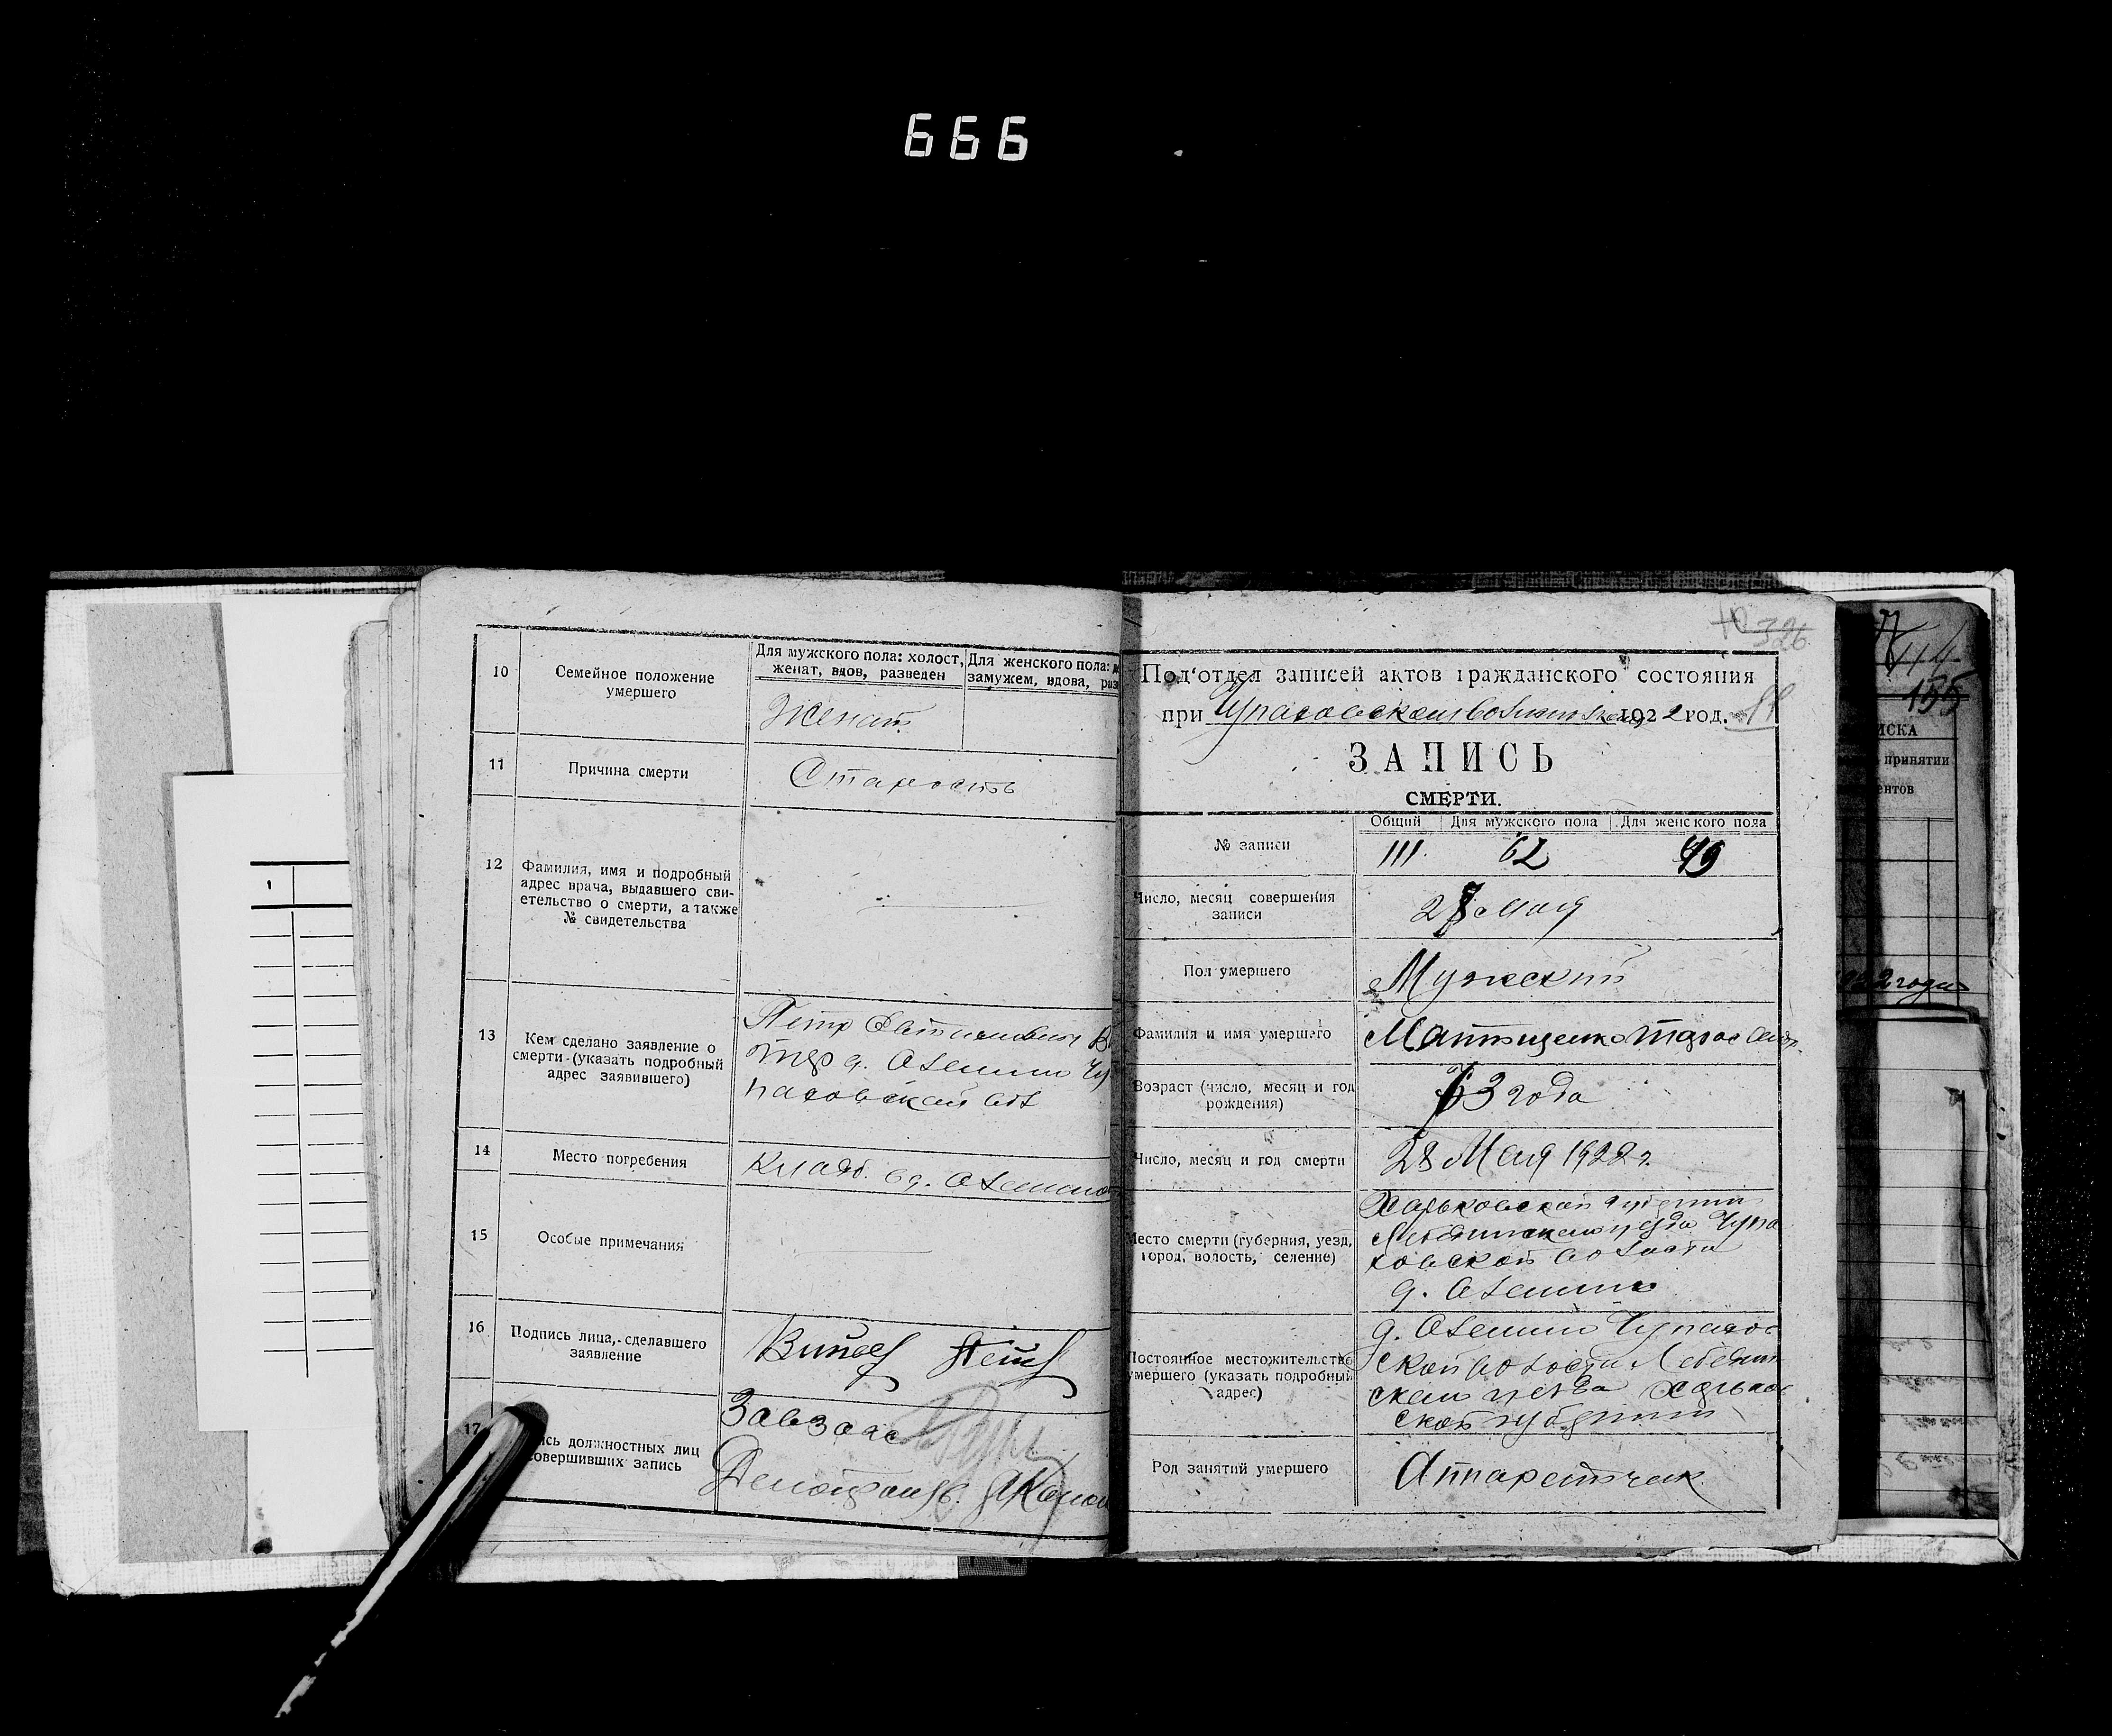 666
10
Семейное положение
умершего
Для мужского пола: холост,
женат, вдов, разведен
Для женского пола:
замужем, вдова, раз
Женат
11
Причина смерти
Старость
12
Фамилия, имя и подробный
адрес врача, выдавшего сви-
етельство о смерти, а также
№ свидетельства
13
Кем сделано заявление о
смерти-(указать подробный
адрес заявившего)
Петр
д.
паховской вол
14
Место погребения
Кладб.
15
Особые примечания
16
Подпись лица, сделавшего
заявление
17
ись должностных лиц
совершивших запись
Завзагс
326
Под'отдел записей актов гражданского состояния
при Чупаховском 1922 год.
ЗАПИСЬ
СМЕРТИ.
№ записи
Общий
Для мужского пола
Для женского пола
111
62
49
Число, месяц совершения
записи
28 мая
Пол умершего
Мужский
Фамилия и имя умершего
Матющенко Тарас
Возраст (число, месяц и год
рождения)
63 года
Число, месяц и год смерти
28 Мая 1922 г.
Место смерти (губерния, уезд,
город, волость, селение)
Харьковской губернии
Лебединского уезда Чупа
ховской волости
д.
Постоянное местожительство
умершего (указать подробный
адрес)
д. Чупахов
ской волости Лебедин
ского уезда Харьков
ской губернии
Род занятий умершего
Аппаретчик
155
ИСКА
принятии
ентов
1922 года
1